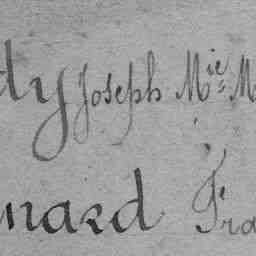 dy Joseph Mie M
nard Fra